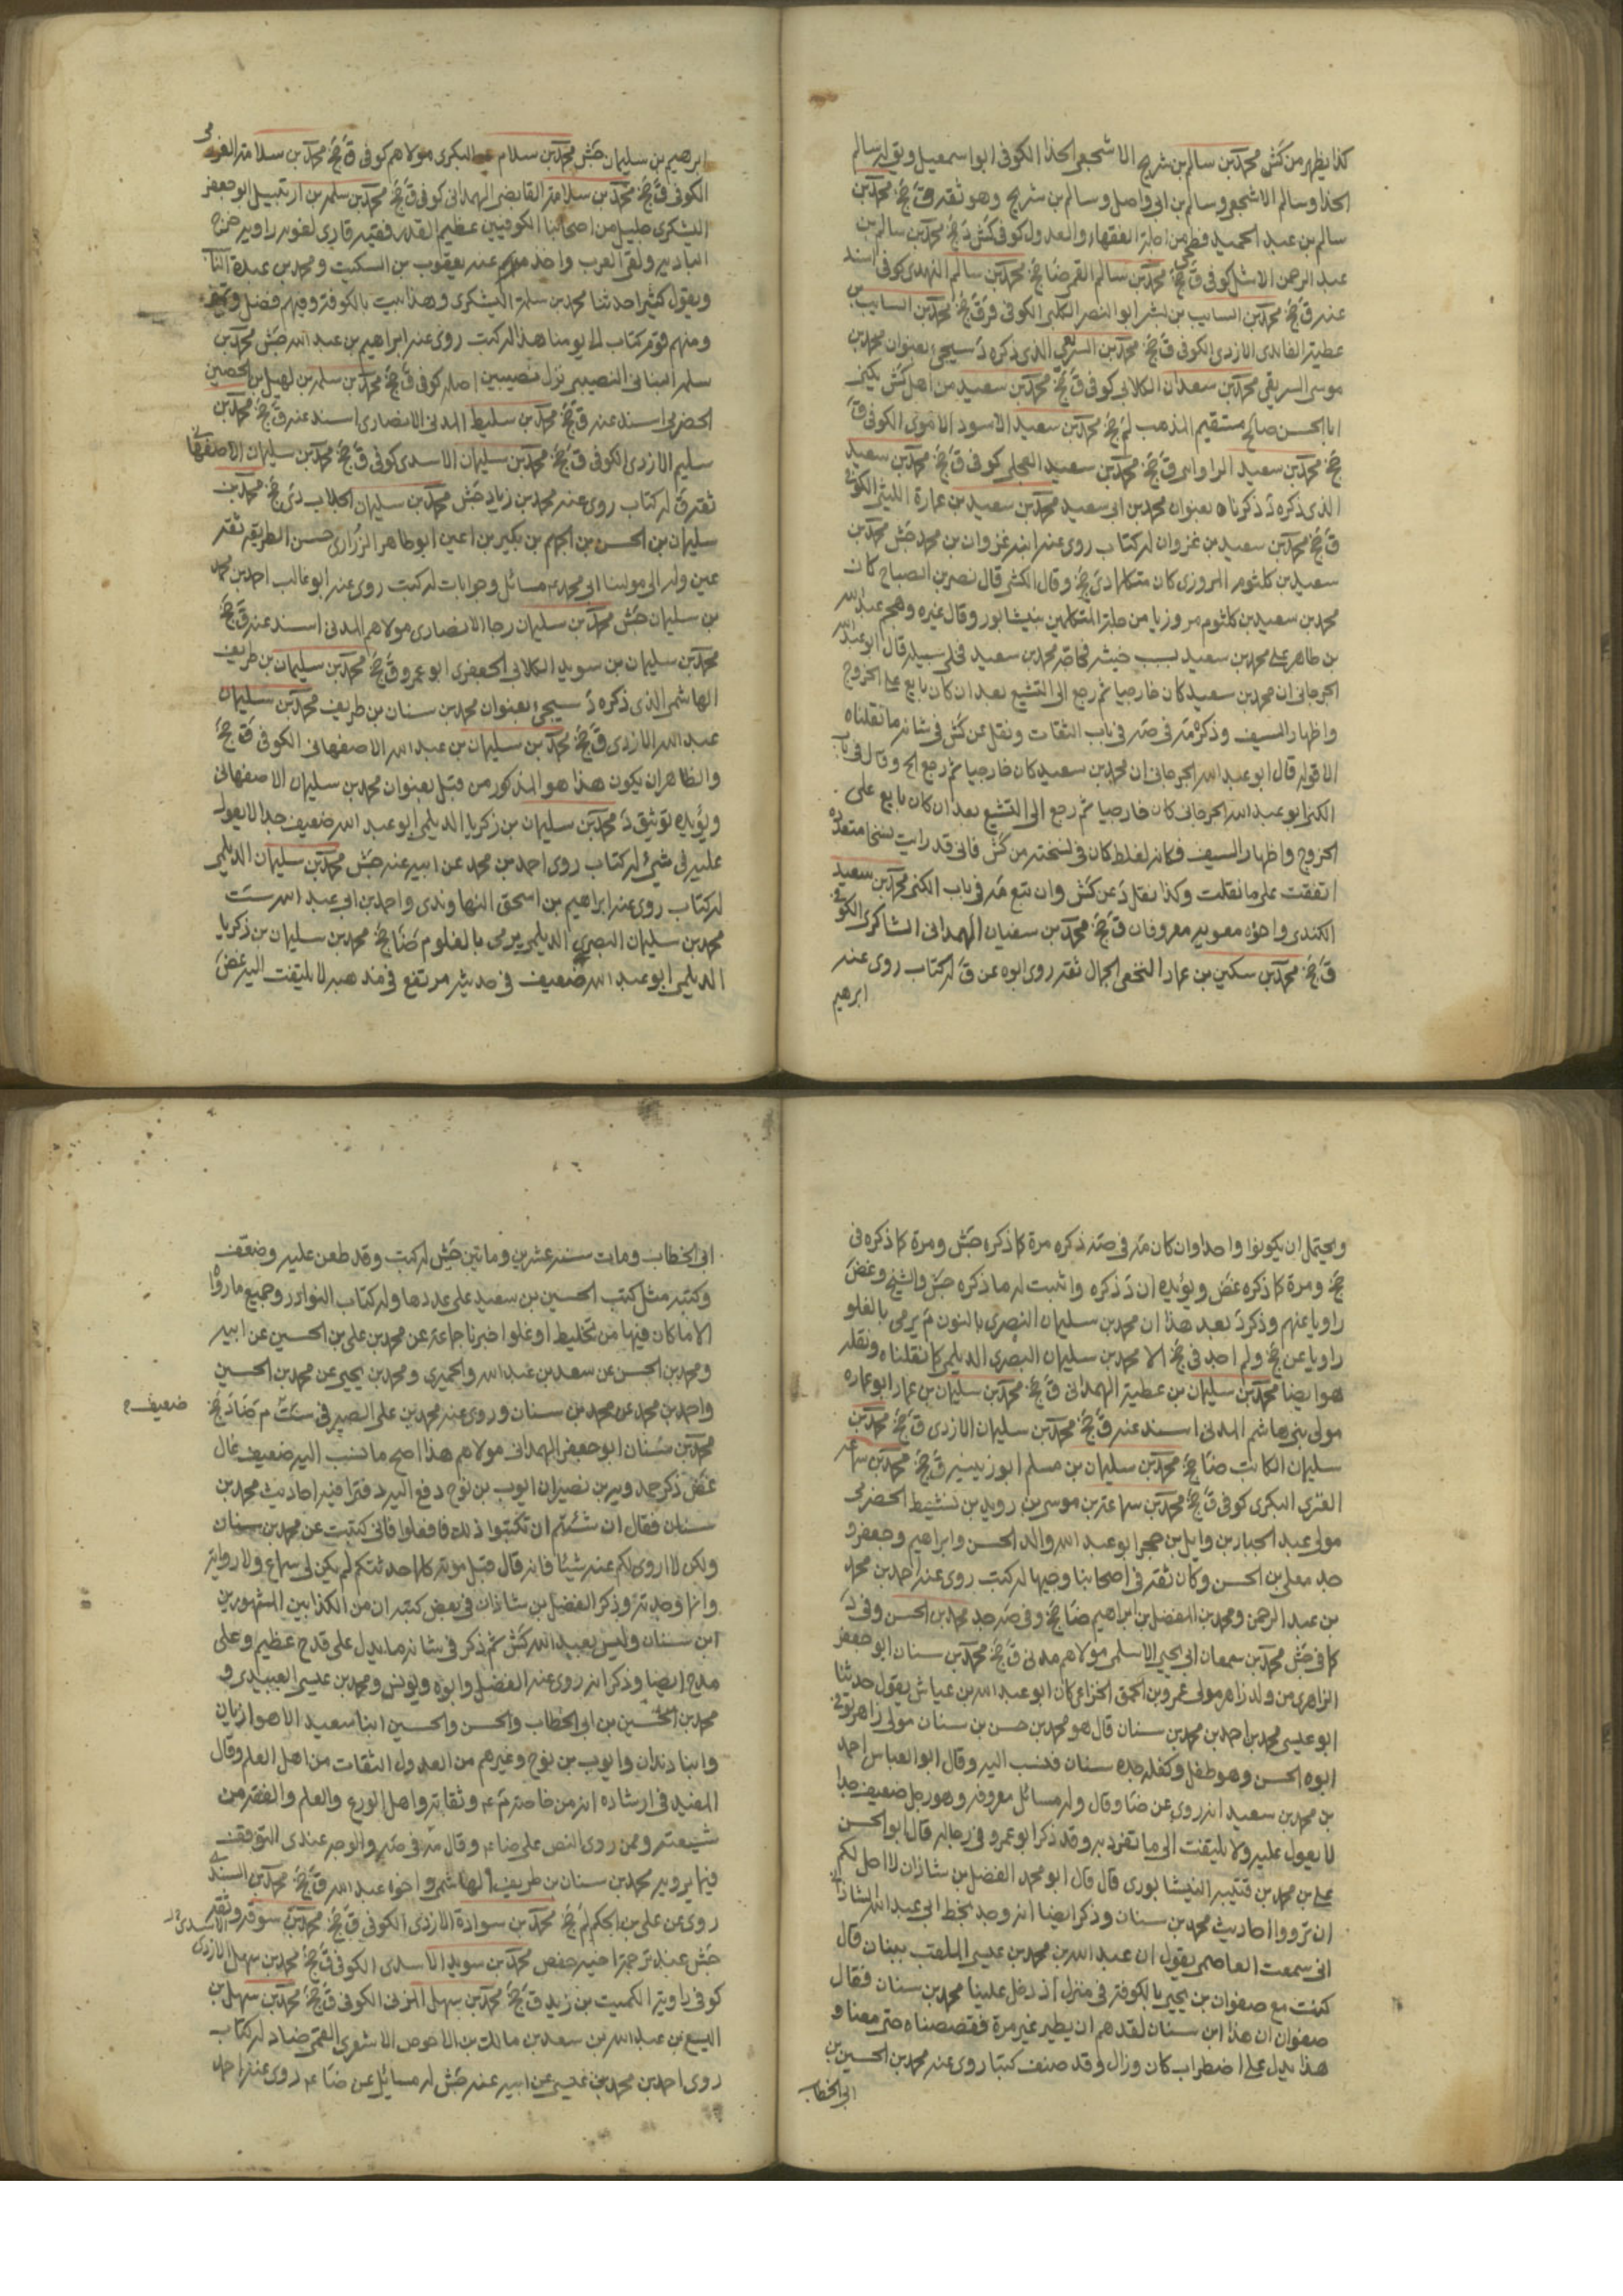 كذا يظهر من كش محمد بن سالم بن شريح الاشجعى الحذا الكوفى ابو اسمعيل ويق له سالم
الحذا وسالم الاشجعى وسالم بن ابى واصل وسالم بن شريح وهو ثقة ق جخ محمد بن
سالم بن عبد الحميد من اجلة الفقهاء والعدول كوفى كش د جخ محمد بن سالم بن
عبد الرحمن الاشل كوفى ق جخ محمد بن سالم القمى ضا جخ محمد بن سالم النهدى كوفى اسند
عنه ق جخ محمد بن السايب بن بشر ابو النصر الكلبى الكوفى قر ق جخ محمد بن السايب بن
عطية الفايدى الازدى الكوفى ق جخ محمد بن السريعى الذى ذكره د سيجئ بعنوان محمد بن
موسى السريعى محمد بن سعدان الكلابى كوفى ق جخ محمد بن سعيد من اهل كش يكنى
ابا الحسن صالح مستقيم المذهب لم جخ محمد بن سعيد الاسود الاموى الكوفى ق
جخ محمد بن سعيد الراواى ق جخ محمد بن سعيد العجلى كوفى ق جخ محمد بن سعيد
الذى ذكره د ذكرناه بعنوان محمد بن ابى سعيد محمد بن سعيد بن عمارة الليثى الكوفى
ق جخ محمد بن سعيد بن غزوان له كتاب روى عنه ابنه غزوان بن محمد جش محمد بن
سعيد بن كلثوم المروزى كان متكلما دى جخ وقال الكشى قال نصر بن الصباح كان
محمد بن سعيد بن كلثوم مروزيا من جلة المتكلمين بنيشابور وقال غيره وهجم عبد الله
بن طاهر على محمد بن سعيد بسبب خبثه فحاجه محمد بن سعيد فخلى سبيله قال ابو عبد الله
الجرجانى ان محمد بن سعيد كان خارجيا ثم رجع الى التشيع بعد ان كان بايع على الخروج
واظهار السيف وذكره مه فى صه فى باب الثقات ونقل عن كش فى شانه ما نقلناه
الا قوله قال ابو عبد الله الجرجانى ان محمد بن سعيد كان خارجيا ثم رجع الخ وقال فى باب
الكنى ابو عبد الله الجرجانى كان خارجيا ثم رجع الى التشيع بعد ان كان بايع على
الخروج واظهار السيف فكانه لغلط كان فى نسخته من كش فانى قد رايت نسخا متعددة
اتفقت على ما نقلت وكذا نقل د عن كش وان تبع مه فى باب الكنى محمد بن سعيد
الكندى واخوه معوية معروفان ق جخ محمد بن سفيان الهمدانى الشاكرى الكوفى
ق جخ محمد بن سكين بن عمار النخعى الجمال ثقة روى ابوه عن ق له كتاب روى عنه
ابرهيم
ابرهيم بن سليمان جش محمد بن سلام البكرى مولاهم كوفى ق جخ محمد بن سلامة
الكوفى ق جخ محمد بن سلامة القابضى الهمدانى كوفى ق جخ محمد بن سلمة بن ارتبيل ابو جعفر
اليشكرى جليل من اصحابنا الكوفيين عظيم القدر فقيه قارى لغوى راوية خرج
البادية ولقى العرب واخذ عنهم عنه يعقوب بن السكيت ومحمد بن عبدة الناب
ويقول كثيرا حدثنا محمد بن سلمة اليشكرى وهذا بيت بالكوفة وفيهم فضل وتميز
ومنهم قوم كتاب الى يومنا هذا له كتب روى عنه ابراهيم بن عبد الله جش محمد بن
سلمة البنانى النصيبى نزل نصيبين اصله كوفى ق جخ محمد بن سلمة بن كهيل بن الحصين
الحضرمى اسند عنه ق جخ محمد بن سليط المدنى الانصارى اسند عنه ق جخ محمد بن
سليم الازدى الكوفى ق جخ محمد بن سليمان الاسدى كوفى ق جخ محمد بن سليمان الاصفهانى
ثقة ق له كتاب روى عنه محمد بن زياد جش محمد بن سليمان الجلاب دى جخ محمد بن
سليمان بن الحسن بن الجهم بن بكير بن اعين ابو طاهر الزرارى حسن الطريقة ثقة
عين وله الى مولينا ابى محمد ع مسائل وجوابات له كتب روى عنه ابو غالب احمد بن محمد
بن سليمان جش محمد بن سليمان رجا الانصارى مولاهم المدنى اسند عنه ق جخ
محمد بن سليمان بن سويد الكلابى الجعفرى ابو عمرو ق جخ محمد بن سليمان بن طريف
الهاشمى الذى ذكره د سيجئ بعنوان محمد بن سنان بن طريف محمد بن سليمان
عبد الله الازدى ق جخ محمد بن سليمان بن عبد الله الاصفهانى الكوفى ق جخ
والظاهر ان يكون هذا هو المذكور من قبل بعنوان محمد بن سليمان الاصفهانى
ويؤيده توثيق د محمد بن سليمان بن زكريا الديلمى ابو عبد الله ضعيف جدا لا يعول
عليه فى شئ له كتاب روى احمد بن محمد عن ابيه عنه جش محمد بن سليمان الديلمى
له كتاب روى عنه ابراهيم بن اسحق النهاوندى واحمد بن ابى عبد الله ست
محمد بن سليمان البصرى الديلمى يرمى بالغلو م ضا جخ محمد بن سليمان بن زكريا
الديلمى ابو عبد الله ضعيف فى حديثه مرتفع فى مذهبه لا يلتفت اليه غض
ويحتمل ان يكونوا واحدا وان كان مه فى صه ذكره مرة كما ذكره جش ومرة كما ذكره فى
جخ ومرة كما ذكره غض ويؤيده ان د ذكره واثبت له ما ذكره جش والشيخ وغض
راويا عنهم وذكر د بعد هذا ان محمد بن سليمان النصرى بالنون م يرمى بالغلو
راويا عن جخ ولم اجد فى جخ الا محمد بن سليمان البصرى الديلمى كما نقلناه ونقله
هو ايضا محمد بن سليمان بن عطية الهمدانى ق جخ محمد بن سليمان بن عمار ابو عماره
مولى بنى هاشم المدنى اسند عنه ق جخ محمد بن سليمان الازدى ق جخ محمد بن
سليمان الكاتب ضا جخ محمد بن سليمان بن مسلم ابو زنيبه ق جخ محمد بن سماعة
العنزى البكرى كوفى ق جخ محمد بن سماعة بن موسى بن رويد بن نشيط الحضرمى
مولى عبد الجبار بن وايل بن حجر ابو عبد الله والد الحسن وابراهيم وجعفر و
جد معلى بن الحسن وكان ثقة فى اصحابنا وجيها له كتب روى عنه احمد بن محمد
بن عبد الرحمن ومحمد بن المفضل بن ابراهيم ضا جخ وفى صه جد محمد بن الحسن وفى د
كما فى جش محمد بن سمعان ابى يحيى الاسلمى مولاهم مدنى ق جخ محمد بن سنان ابو جعفر
الزاهرى من ولد زاهر مولى عمرو بن الحمق الخزاعى كان ابو عبد الله بن عياش يقول حدثنا
ابو عيسى محمد بن احمد بن محمد بن سنان قال هو محمد بن حسن بن سنان مولى زاهر توفى
ابوه الحسن وهو طفل وكفله جده سنان فنسب اليه وقال ابو العباس احمد
بن محمد بن سعيد انه روى عن ضا وقال وله مسائل معروفة وهو رجل ضعيف جدا
لا يعول عليه ولا يلتفت الى ما تفرد به وقد ذكر ابو عمرو فى رجاله قال ابو الحسن
على بن محمد بن قتيبه النيشابورى قال قال ابو محمد الفضل بن شاذان لا احل لكم
ان ترووا احاديث محمد بن سنان وذكر ايضا انه وجد بخط ابى عبد الله الشاذانى
انى سمعت العاصمى يقول ان عبد الله بن محمد بن عيسى الملقب ببنان قال
كنت مع صفوان بن يحيى بالكوفة فى منزل اذ دخل علينا محمد بن سنان فقال
صفوان ان هذا ابن سنان لقد هم ان يطير غير مرة فقصصناه حتى معنا و
هذا يدل على اضطراب كان وزال وقد صنف كتبا روى عنه محمد بن الحسين بن
ابى الخطاب
ابى الخطاب ومات سنة عشرين وماتين جش له كتب وقد طعن عليه وضعف
وكتبه مثل كتب الحسين بن سعيد على عددها وله كتاب النوادر وجميع ما رواه
الا ما كان فيها من تخليط او غلو اخبرنا جماعة عن محمد بن على بن الحسين عن ابيه
ومحمد بن الحسن عن سعد بن عبد الله والحميرى ومحمد بن يحيى عن محمد بن الحسين
واحمد بن محمد عن محمد بن سنان وروى عنه محمد بن على الصيرفى ست م ضا د جخ
ضعيف
محمد بن سنان ابو جعفر الهمدانى مولاهم هذا اصح ما نسب اليه ضعيف غال
غض ذكر حمدويه بن نصير ان ايوب بن نوح دفع اليه دفترا فيه احاديث محمد بن
سنان فقال ان شئتم ان تكتبوا ذلك فافعلوا فانى كتبت عن محمد بن سنان
ولكن لا اروى لكم عنه شيئا فانه قال قبل موته كلما حدثتكم لم يكن لى سماع ولا رواية
وانما وجدته وذكر الفضل بن شاذان فى بعض كتبه ان من الكذابين المشهورين
ابن سنان وليس بعبد الله كش ثم ذكر فى شانه ما يدل على قدح عظيم وعلى
مدح ايضا وذكر انه روى عنه الفضل وابوه ويونس ومحمد بن عيسى العبيدى و
محمد بن الحسين بن ابى الخطاب والحسن والحسين ابنا سعيد الاهوازيان
وابنا دندان وايوب بن نوح وغيرهم من العدول الثقات من اهل العلم وقال
المفيد فى ارشاده انه من خاصته م ع وثقاته واهل الورع والعلم والفقه من
شيعته وممن روى النص على ضا ع وقال مه فى صه والوجه عندى التوقف
فيما يرويه محمد بن سنان بن طريف الهاشمى واخوه عبد الله ق جخ محمد بن السندى
روى عن على بن الحكم لم جخ محمد بن سوادة الازدى الكوفى ق جخ محمد بن سوقه وثقه
جش عند ترجمة اخيه حفص محمد بن سويد الاسدى الكوفى ق جخ محمد بن سهل الازدى
كوفى راوية الكميت بن زيد ق جخ محمد بن سهل المزنى الكوفى ق جخ محمد بن سهل بن
اليسع بن عبد الله بن سعد بن مالك بن الاحوص الاشعرى القمى ضا د له كتاب
روى احمد بن محمد بن عيسى عن ابيه عنه جش له مسائل عن ضا ع روى عنه احمد